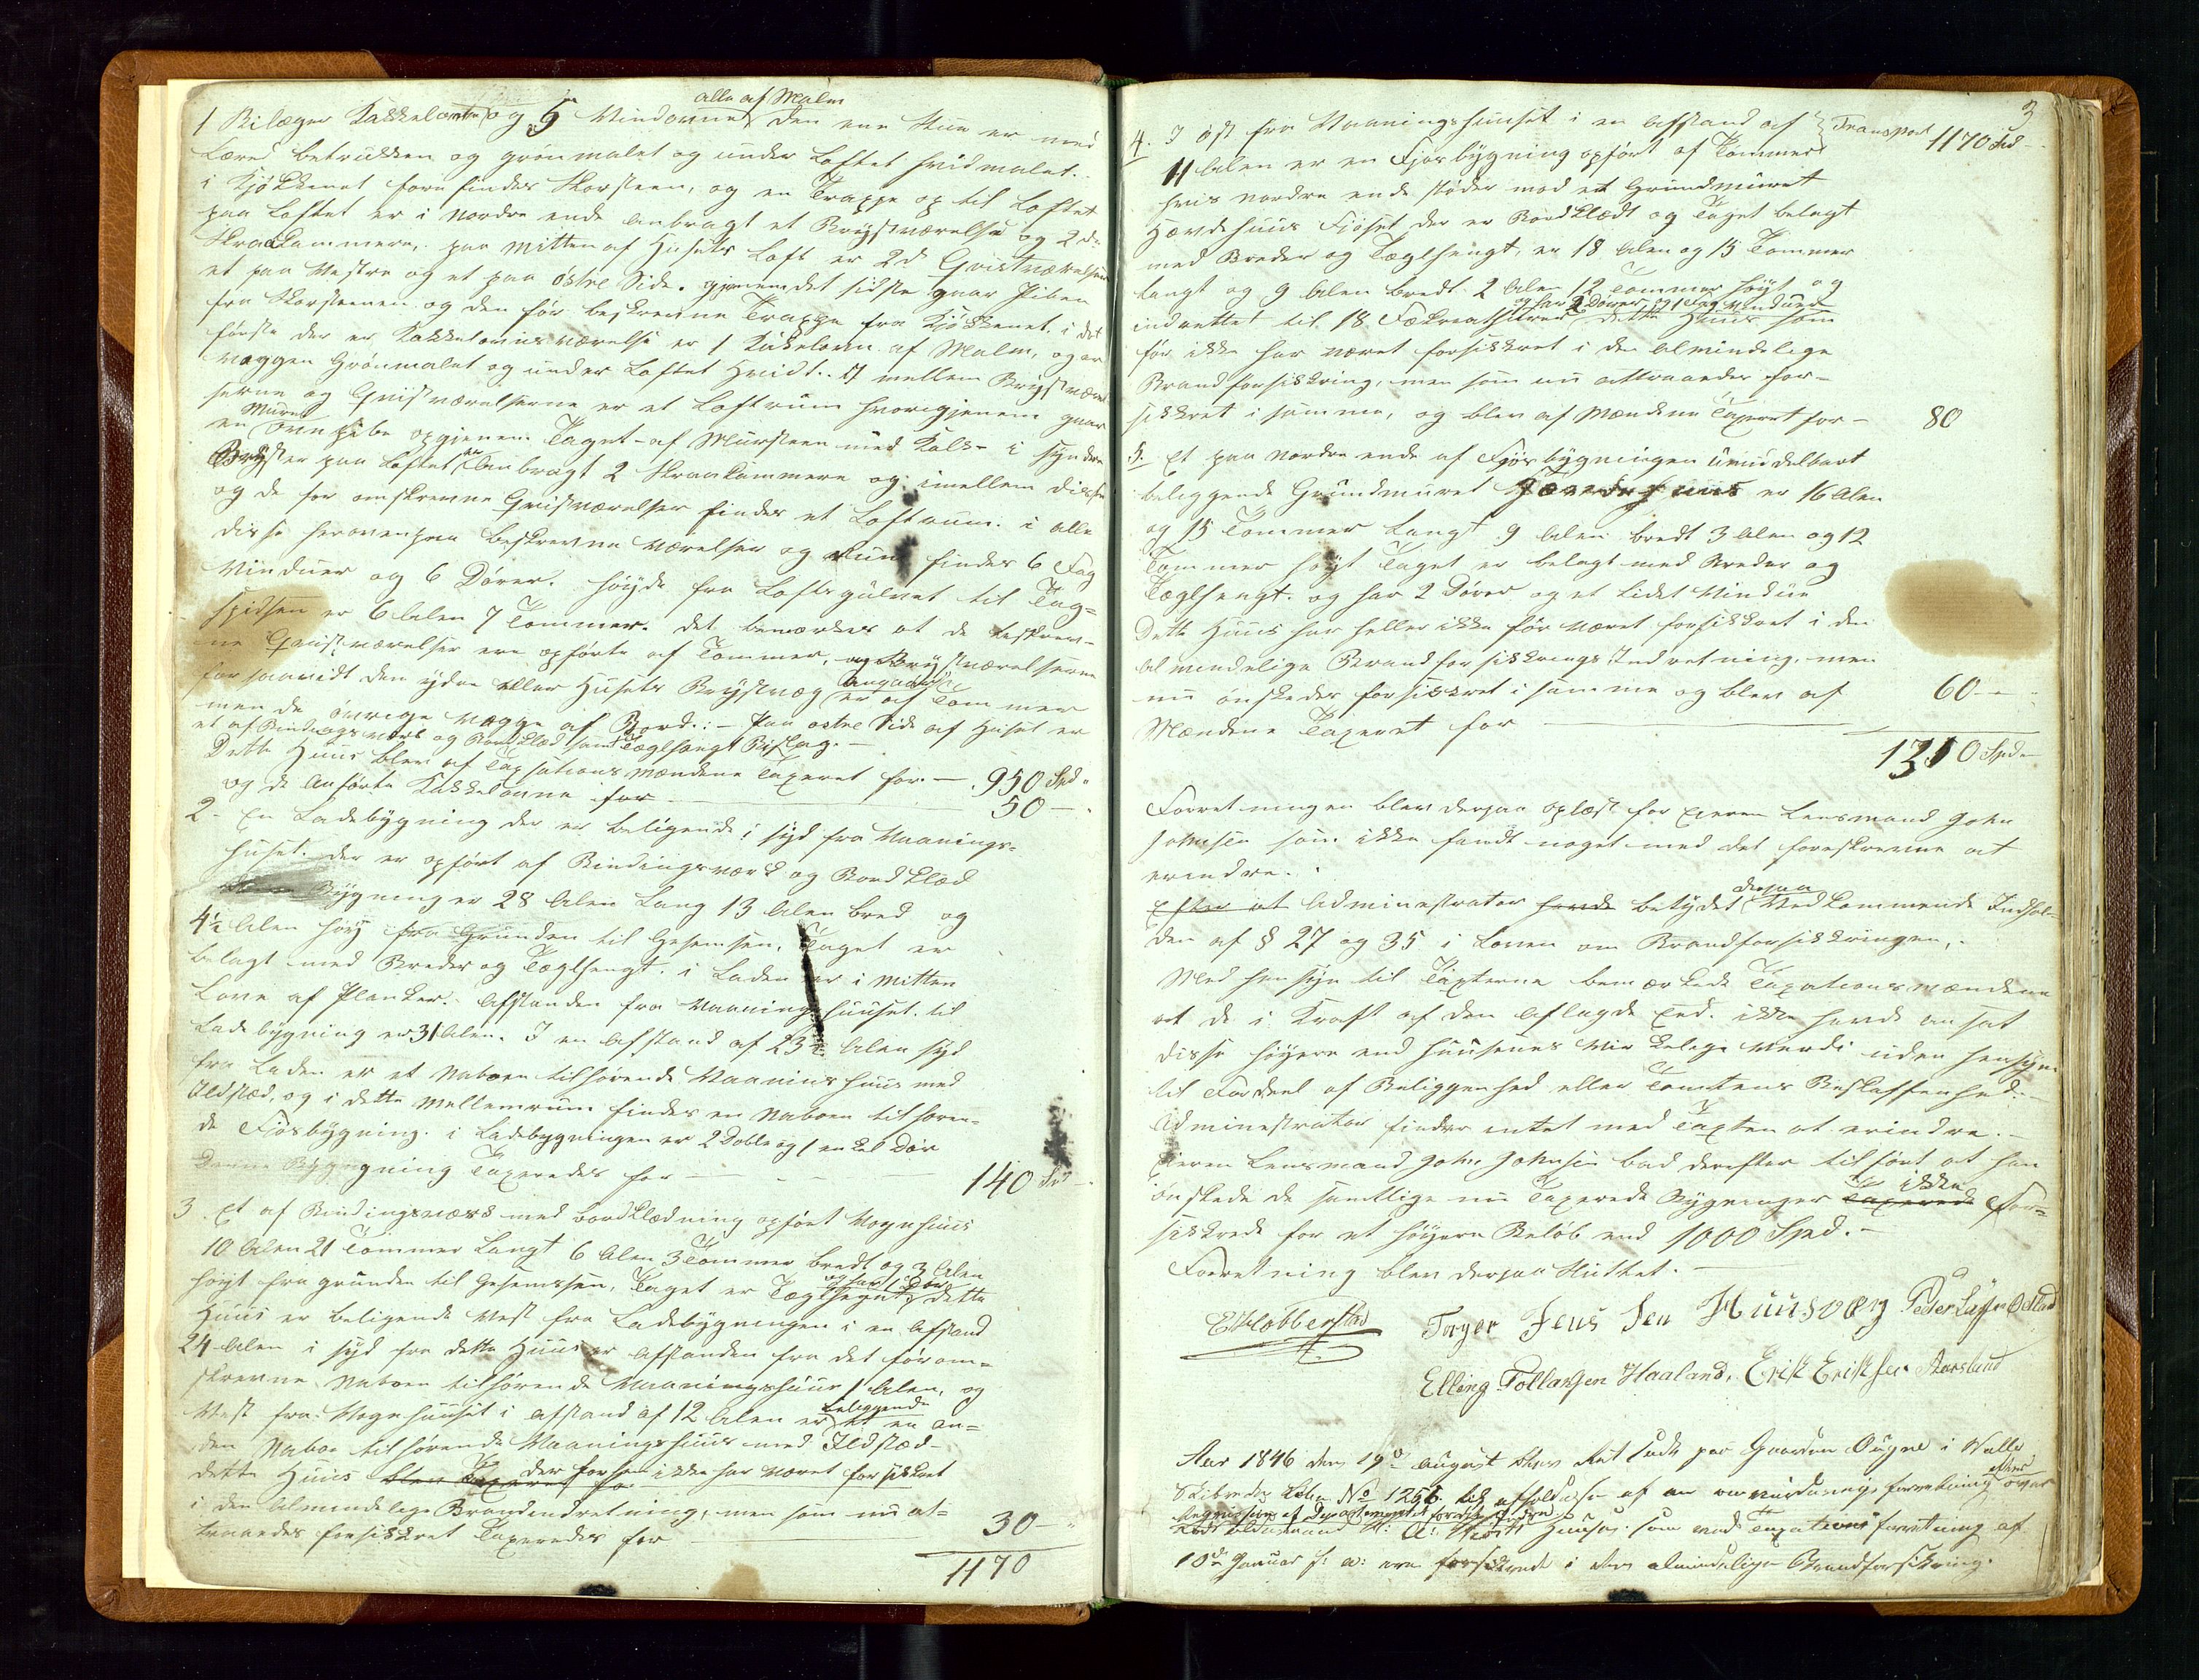 alle af Malm
1 Bilægger Kakkelovn og 5 Vindovne den ene Stue er med
Læred betrukken og grønmalet og under Loftet hvidmalet.
i Kjøkkenet forefindes Skorsteen, og en Trappe op til Loftet
paa Loftet er i Nordre ende anbragt et Brystværelse og 2de
Skraakammere, paa Mitten af Husets Loft er 2d Qvistværelser
et paa Vestre og et paa østre Side. gjenem det sidste gaar Piben
fra Skorstenen og den før beskrevne Trappe fra Kjøkkenet. i det
første der er Kakkelovnsværelse er 1 Kakelovn af Malm, og er
væggen Grønmalet og under Loftet Hvidt. mellem Brystværel-
serne og Qvistværelserne er et Loftrum hvorigjenem gaar
Muret
en ovnpibe opgjenem Taget af Mursteen med Kalk i syndre
Bryst er paa Loftet er Anbragt 2 Skraakammere og imellem disse
og de før omskrevne Qvistværelser findes et Loftrum. i alle
disse herovenpaa beskrevne Værelser og Rum findes 6 Fag
Vinduer og 6 Dører. høyde fra Loftsgulvet til Tag-
spidsen er 6 Alen 7 Tommer. det bemærkes at de beskrev-
ne Qvistværelser ere opførte af Tømmer, og Brystværelserne
forsaavidt den ydre eller Husets Brystvæg angaar er af Tømmer
men de øvrige vægge af Bord. :- Paa østre Side af Huset er
et af Bindingsverk og Bordklæd samt Tæglhængt Bislag. -
Dette Huus blev af Taxsationsmændene Taxeret for. - 950 Spd.
og de Anførte Kakkelovne for - 50 -
2. En Ladebygning der er beligende i syd fra Vaanings-
huset. der er opført af Bindingsværk og Bordklæd
Bygning er 28 Alen Lang 13 Alen bred og
4½ Alen høy fra Grunden til Gesemsen, Taget er
belagt med Breder og Tæglhengt. i Laden er i Mitten
Love af Planker. Afstanden fra Vaaningshuuset til
Ladebygning er 31 Alen. I en Afstand af 23½ Alen syd
fra Laden er et Naboen tilhørende Vaaninshuus med
Ildsted, og i dette Mellemrum findes en Naboen tilhøren-
de Fjøsbygning. i Ladebygningen er 2 Doble og 1 enkel Dør
Denne Bygning Taxeredes for - 140 Spd
3. Et af Bindingsværk med bordklædning opført Vognhuus
10 Alen 21 Tommer Langt 6 Alen 3 Tommer bredt og 3 Alen
høyt fra grunden til Gesemsen, Taget er Tæglhengt og har 1 Dør dette
Huus er beligende Vest fra Ladebygningen i en Afstand
24 Alen i syd fra dette Huus er Afstanden fra det førom-
skrevne Naboen tilhørende Vaaningshuus 1 Alen, og
Vest fra Vognhuuset i Afstand af 12 Alen er beliggende et en an-
den Naboe tilhørende Vaaningshuus med Ildsted -
dette Huus blev Taxeret for der forhen ikke har været forsikkret
i den Almindelige Brandindretning, men som nu at-
traaedes forsikkret Taxeredes for - 30 -
1170
3
4. I øst fra Vaaningshuuset i en Afstand af Transport 1170 Spd
11 Alen er en Fjøsbygning opført af Tømmer
hvis Nordre ende støder mod et Grundmuret
Hævdehuus Fjøset der er Bordklædt og Taget belagt
med Breder og Tæglhengt, er 18 Alen og 15 Tommer
Langt og 9 Alen bredt 2 Alen 12 Tommer høyt og
indrettet til 18 Fækreatuurer og har 2 Dører og 1 Fag Vinduer dette Huus som
før ikke har været forsikkret i den Almindelige
Brandforsikkring, men som nu attraaedes for-
sikkret i samme, og blev af Mændene Taxeret for - 80
5. Et paa Nordre ende af Fjøsbygningen umiddelbart
beliggende Grundmuret Hævdehuus er 16 Alen
og 15 Tommer Langt 9 Alen bredt 3 Alen og 12
Tommer høyt Taget er belagt med Breder og
Tæglhengt. og har 2 Dører og et lidet Vindue
Dette Huus har heller ikke før været forsikkret i den
Almindelige Brandforsikkrings Indretning, men
nu ønskedes forsikkret i samme og blev af
Mændene Taxeret for - 60 -
1310 Spd.
Forretningen blev derpaa oplæst for Eieren Lensmand John
Johnsen som ikke fandt noget med det foreskrevne at
erindre.
Efter at Administrator havde betydet derpaa Vedkommende Indhol-
den af § 27 og 35 i Loven om Brandforsikkringen,
Med hensyn til Taxterne bemærkede Taxationsmændene
at de i Kraft af den Aflagde Eed. ikke havde ansat
disse høyere end huusenes Virkelige Værdi uden hensyn
til Fordeel af Beliggenhed eller Tomtens Beskaffenhed. -
Administrator finder intet med Taxten at erindre. -
Eieren Lensmand John Johnsen bad derefter tilført at han
ønskede de samtlige nu Taxerede Bygninger Taxerede ikke For-
sikkrede for et høyere Beløb end 1000 Spd. -
Forretning blev derpaa Sluttet. -
E Hobberstad Torger Jens Sen Huusvæg Peder Larsen Odland
Elling Tollaksen Haaland, Erik Eriksen Aarsland
Aar 1846 den 19de August blev Ret sadt paa Gaarden Øugne i Valle
Skibreder Lbn No 1256 til afholdelse af en omvurderings forretning efter
Requisition af Departementet for det Indre over
Huuse som ved Taxationsforretning af
10de Januar f: a: ere forsikrede i den almindelige Brandforsikring.